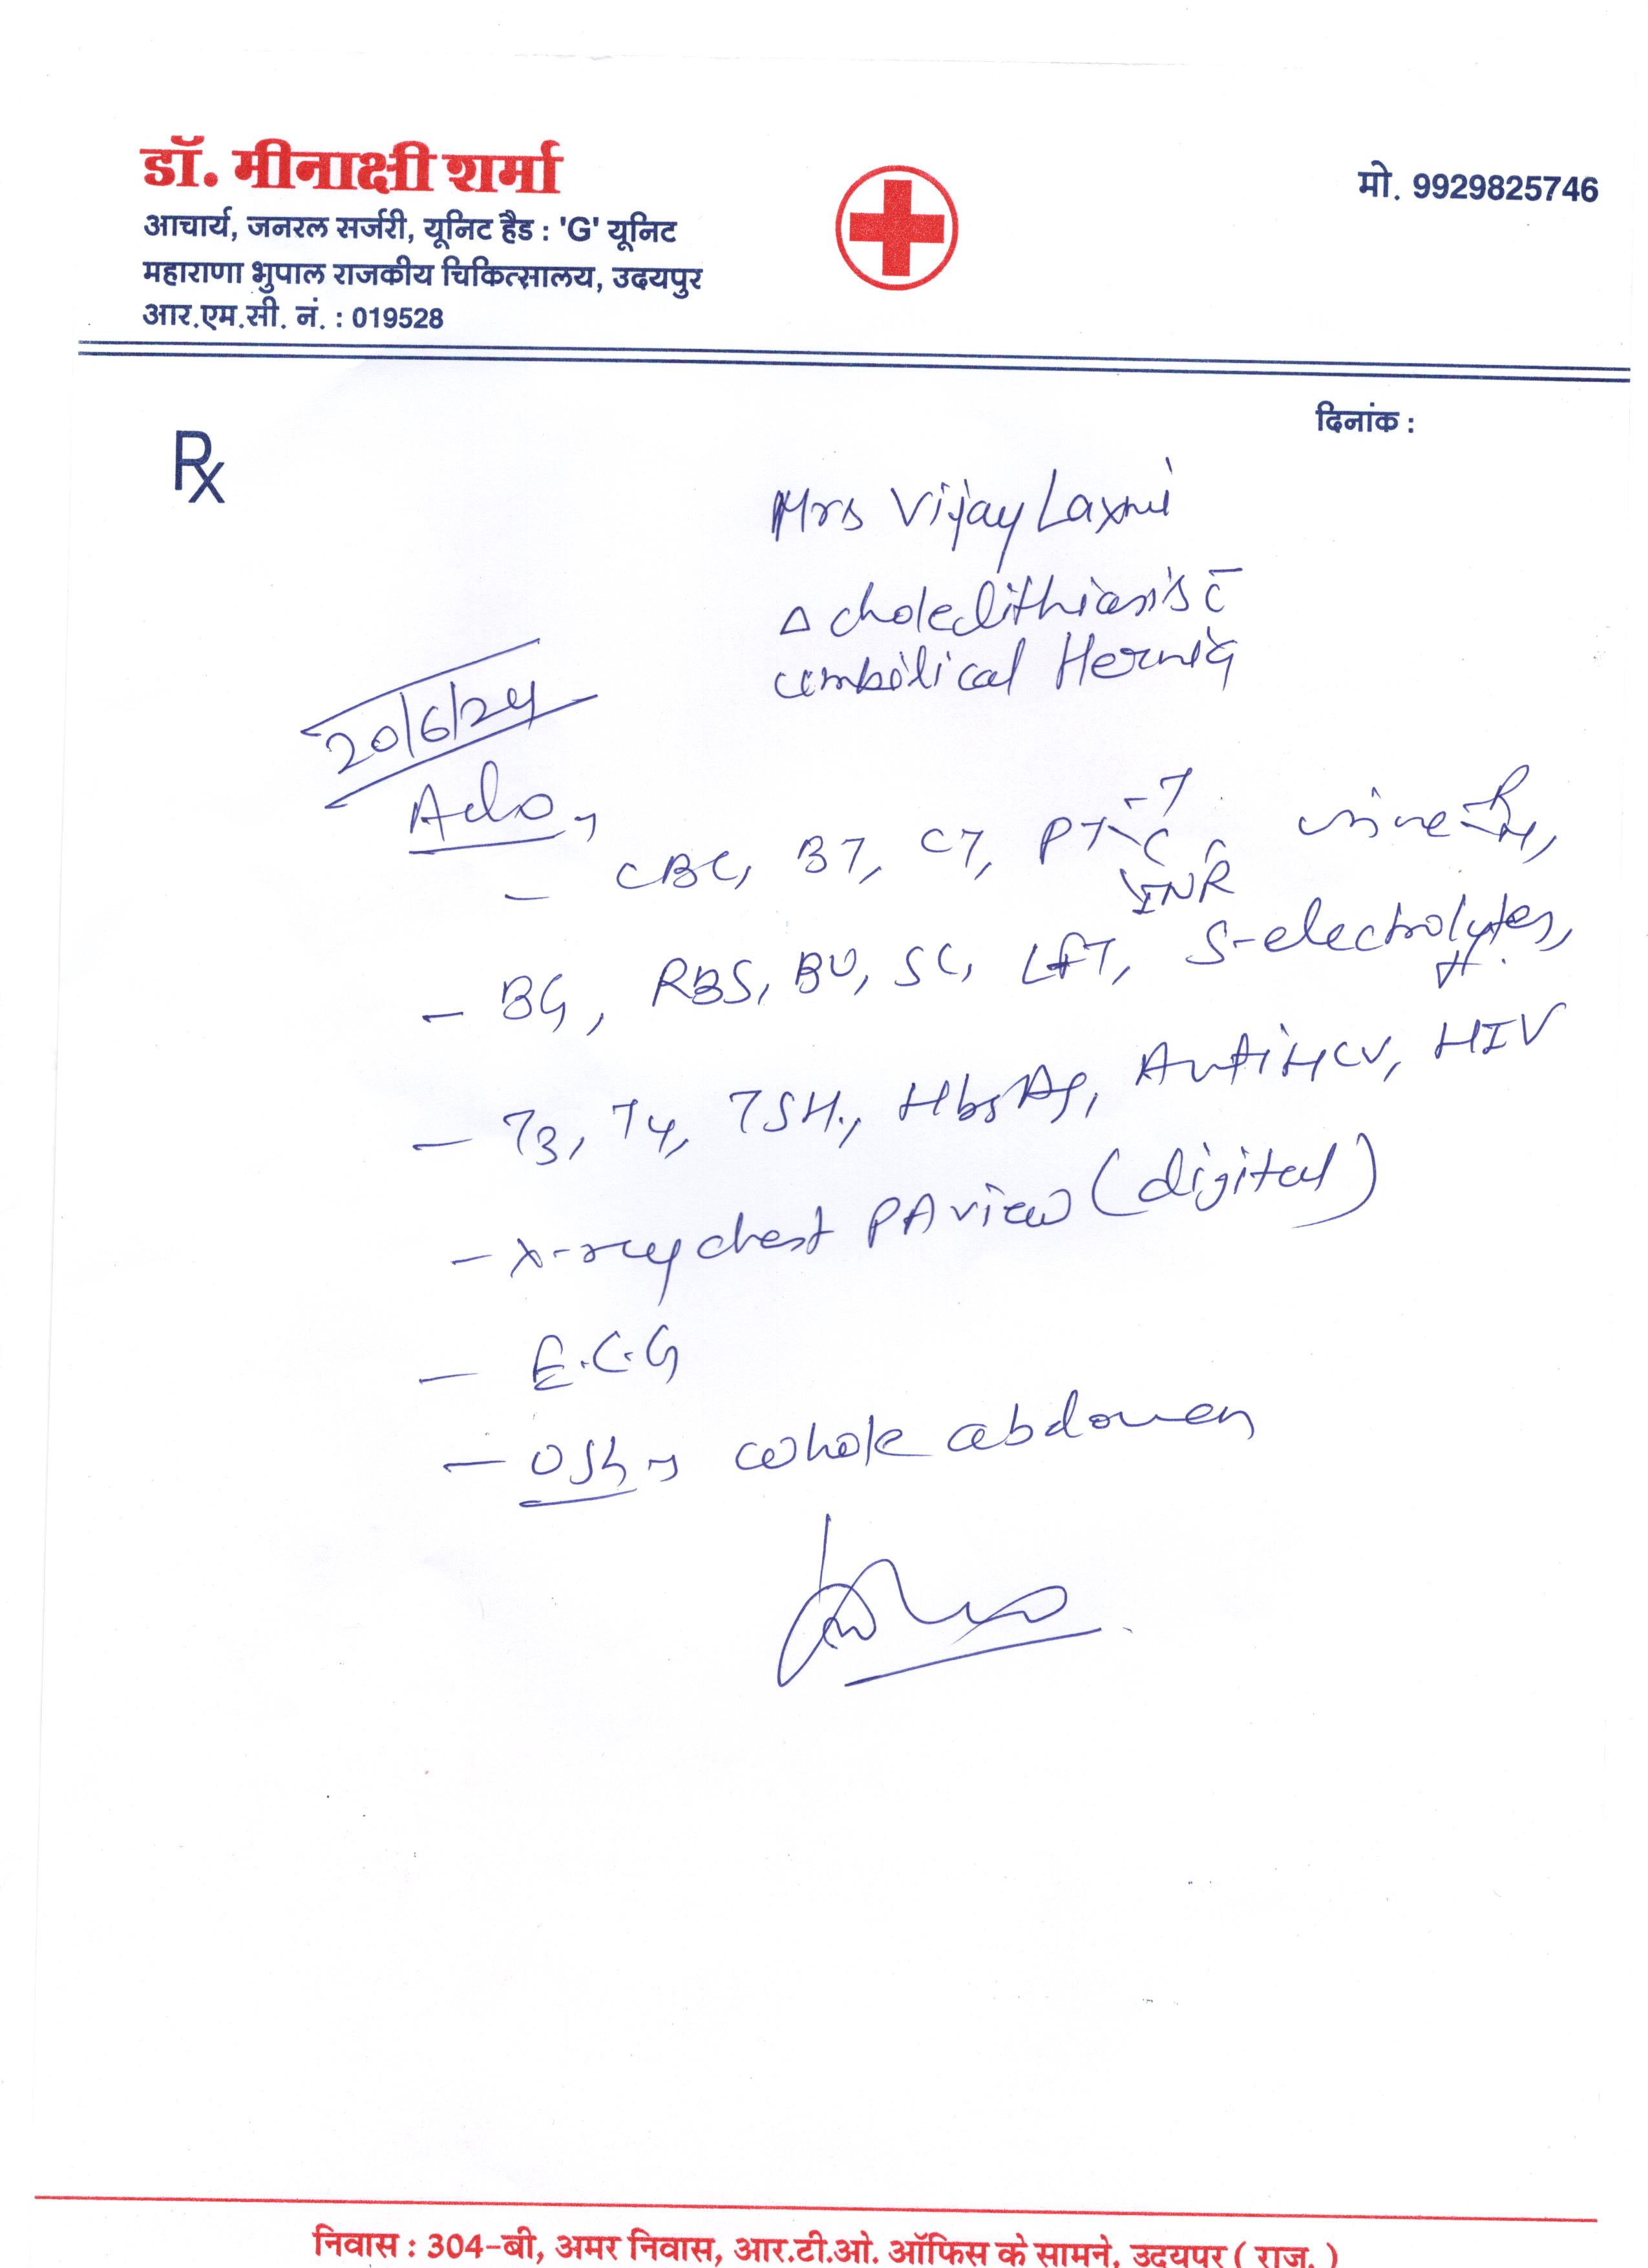 डॉ. मीनाक्षी शर्मा
आचार्य, जनरल सर्जरी, यूनिट हैड : 'G' यूनिट
महाराणा भुपाल राजकीय चिकित्सालय, उदयपुर
आर.एम.सी. नं. : 019528
मो. 9929825746
दिनांक :
Rx
Mrs Vijay Laxmi
Δ cholelithiasis c̄
umbilical Hernia
20/6/24
Adv,
- CBC, BT, CT, PT - T C INR urine
- BG, RBS, BU, SC, LFT, S-electrolytes,
- T3, T4, TSH, HbsAg, Anti HCV, HIV
- x-ray chest PA view (digital)
- E.C.G
- USG whole abdomen
निवास : 304-बी, अमर निवास, आर.टी.ओ. ऑफिस के सामने, उदयपुर ( राज. )